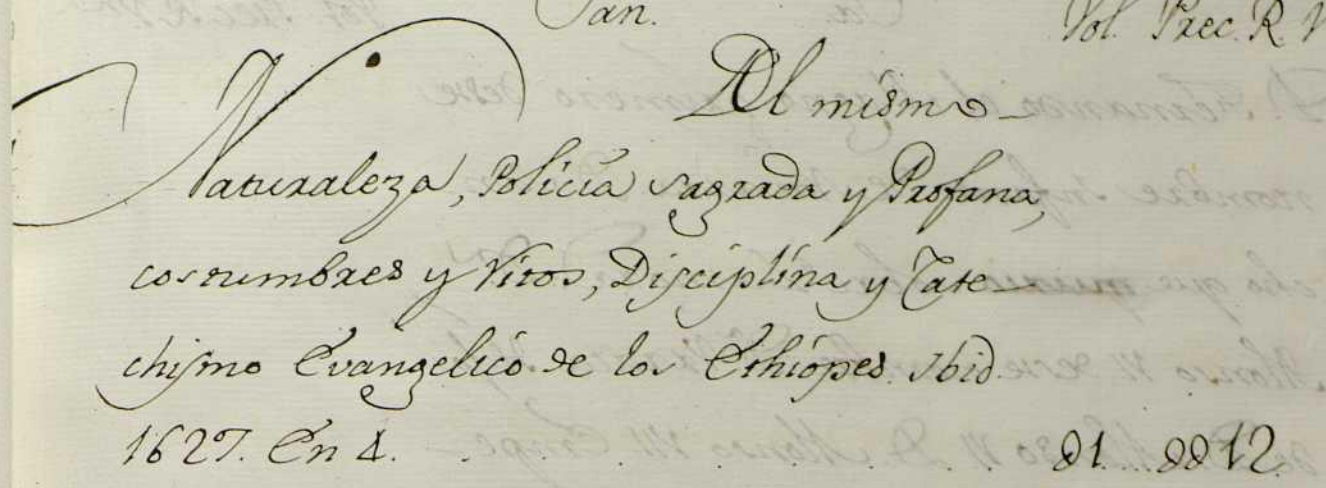 San. Cta. Vol. Prec. R. V
Del mismo
Naturaleza, Policía sagrada y Profana,
costumbres y Ritos, Disciplina y Cate
chismo Evangelico de los Ethiopes. Ibid.
1627. En 4. . . . . . . . 01 0012